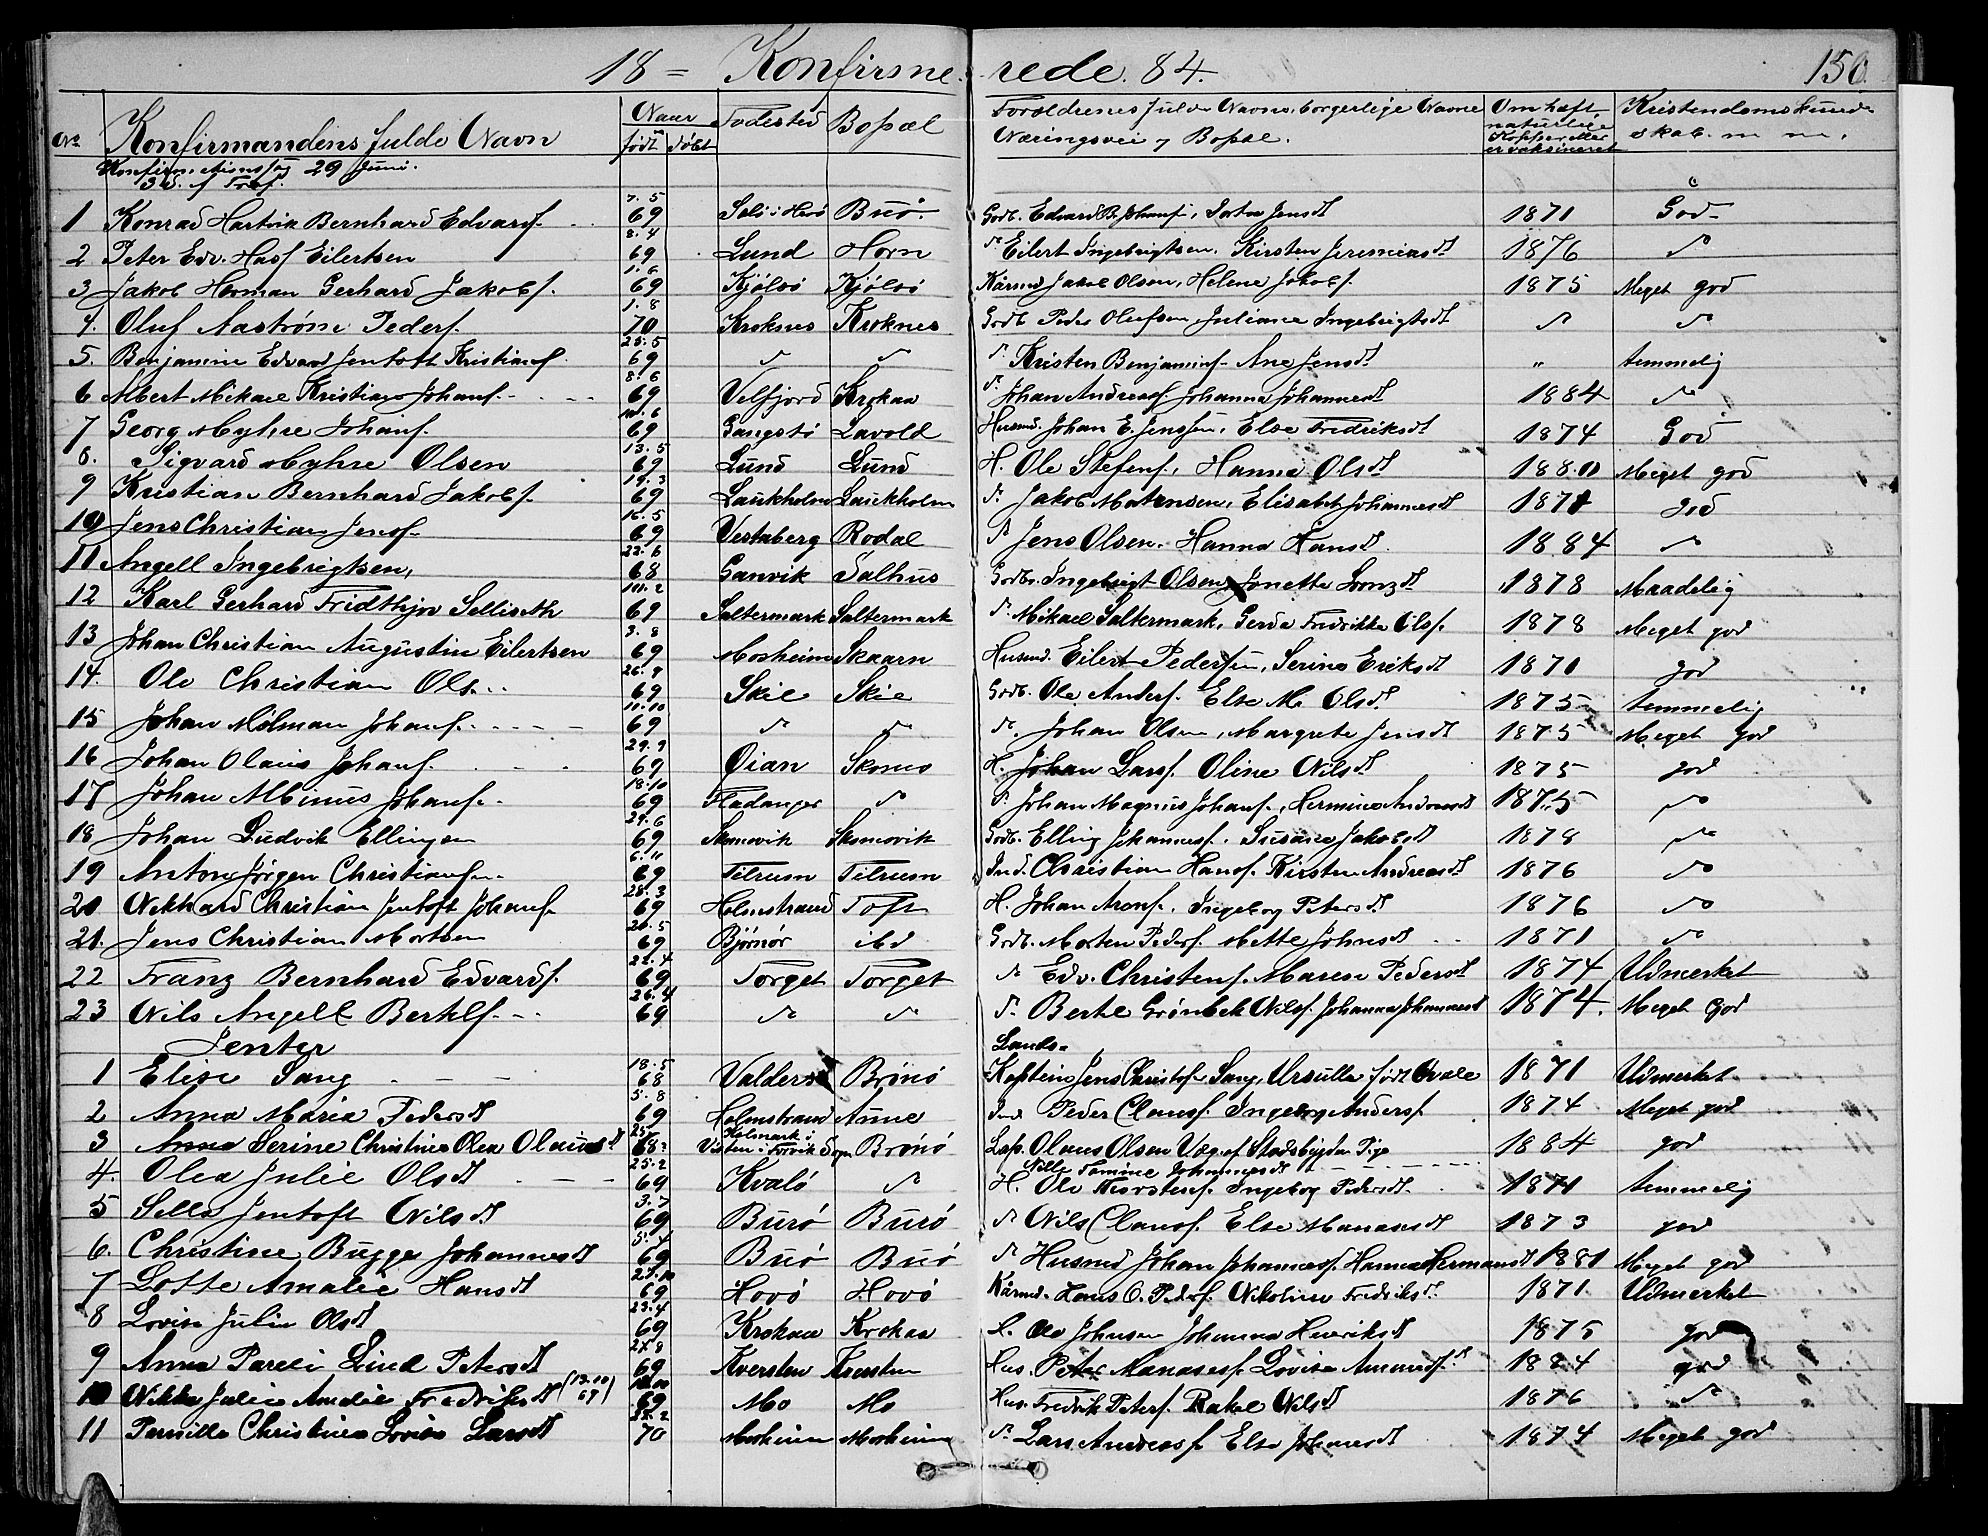 18 = Konfirme- rede. 84. 150.
No Konfirmandens fulde Navn Naar født døbt Fødested Bopæl Forældrenes fulde Navne, borgerlige Navne Næringsvei og Bopæl. Om haft naturlige Kopper eller er vaksineret Kristendomskundskab m m.
Konfirmationsdag 29 Juni.
3 S. e f Tref.
1 Konrad Hartvik Bernhard Edvardf. 7.5 69 Sølø i Herø Buø. Godb. Edvard B. Johanf., Dortea Jensdt 1871 God
2 Peter Edv. Hasf Eilertsen 8.4 69 Lund Horn do Eilert Ingebrigtsen. Kirsten Jeremiasdt 1876 do
3 Jakob Herman Gerhard Jakobf. 1.6 69 Kjølsø Kjølsø Kårmd Jakob Olsen, Helene Jakobf. 1875 Meget god
4. Oluf Aastrøm Pederf. 1.8 70 Kroknes Kroknes Godb Peder Olufsen Juliane Ingebrigtsdt do do
5. Benjamin Edvard Jentoft Kristianf. 25.5 69 do do do Kristen Benjaminf. Ane Jensdt " temmelig
6 Albert Mikael Kristian Johanf. 8.6 69 Velfjord Krokaa do Johan Andreasf. Johanna Johannesdt 1884 do
7 Georg Myhre Johanf. 10.6 69 Gangstø Lavold Husmd. Johan E. Jenssen, Else Fredriksdt 1874 God
8. Sigvard Myhre Olsen 13.5 69 Lund Lund H. Ole Stefenf., Hanna Olsdt 1880 Meget god
9 Kristian Bernhard Jakobf. 19.3 69 Laukholm Laukholm do Jakob Mortensen, Elisabet Johannesdt 1871 god
10 Jens Christian Jensf. 16.5 69 Vestaberg Rodal do Jens Olsen. Hanna Hansdt. 1884 do
11 Angell Ingebrigtsen, 22.6 68 Ganvik Salhus Godb. Ingebrigt Olsen, Jonetta Lornzdt 1878 Maadelig
12 Karl Gerhard Fridthjov Sellisæth 10.2 69 Saltermark Saltermark do Mikael Saltermark, Gerda Fredrikka Olsf. 1878 Meget god
13 Johan Christian Augustin Eilertsen 3.8 69 Mosheim Skaarn Husmd. Eilert Pedersen, Serine Eriksdt 1871 god
14. Ole Christian Ols.. 26.9 69 Skie Skie Godb. Ole Andersf. Else M. Olsdt. 1875 temmelig
15 Johan Mølman Johanf. 11.10 69 do do do. Johan Olsen, Margrete Jensdt 1875 Meget god
16 Johan Olaus Johanf. 29.9 69 Øian Skomo H. Johan Larsf. Oline Nilsdt 1875 god
17 Johan Albinus Johanf. 18.10 69 Fladanger do do Johan Magnus Johanf., Hermine Andreasdt 1875 do
18 Johan Ludvik Ellingsen 29.6 69 Skomovik Skomovik Godb. Elling Johannesf. Susanna Jakobsdt 1878 do
19 Anton Jørgen Christianf. 6.11 69 Tilrem Tilrem Ind. Christian Hansf. Kirsten Andreasdt 1876 do
20 Nikhard Christian Jentoft Johanf. 28.3 69 Holmstrand Toft H. Johan Aronf. Ingeborg Petersdt. 1876 do
21. Jens Christian Mortsen 20.5 69 Bjørnør ibd Godb. Morten Pederf. Mette Johnsdt 1871 do
22 Franz Bernhard Edvardf. 22.4 69 Torget Torget do Edv. Christenf. Maren Pedersdt 1874 Udmerket
23 Nils Angell Bertelf. 26.4 69 do do do Bertel Grönbek Nilsf. Johanna Johannesdt 1874. Meget god
Jenter
1 Elise Sang 18.5 68 Valders Brønø Lands- Kaptein Jens Christofer Sang, Ursulla født Qvale 1871 Udmerket
2 Anna Maria Pedersdt 5.8 69 Holmstrand Aune Ind Peder Clausf. Ingeborg Andersf. 1874 Meget god
3 Anna Serine Christine Olea Olausdt 68 Holmark i Visten i Forvik Sogn Brønø Lap. Olaus Olsen Væg. af Stadsbygden Pige Nille Tomine Johannesdt 1884 god
4. Olea Julie Olsdt 25.2 69 Kvalø do H. Ole Thorstenf. Ingeborg Pedersdt 1871 temmelig
5 Sella Jentoft Nilsdt. 3.7 69 Burø Burø do Nils Clausf. Else Manasdt 1873 god
6. Christine Bugge Johannesdt 5.4 69 Buø Buø do Husmd Johan Johannesf. Hanna Hermansdt 1881 Meget god
7 Lotte Amalie Hansdt 21.10 69 Hovø Hovø Kårmd. Hans O. Pedf. Nikoline Fredriksdt. 1871 Udmerket
8 Lovise Julie Olsdt 23.4 69 Krokaa Krokaa S. Ole Johnsen Johanna Henriksdt 1875 god
9 Anna Pareli Lind Petersdt 27.8 69 Kversten Kversten Hus. Peter Manassesf. Lovise Ammundf.dt 1884 god
10 Nikka Julie Amalie Fredriksdt (13.10 69) 69 Mo Mo Hus. Fredrik Petersf. Rakel Nilsdt 1876 do
11 Pernille Christine Lovise Larsdt 22.2 70 Mosheim Mosheim do Lars Andreasf Else Johansdt 1874 Meget god